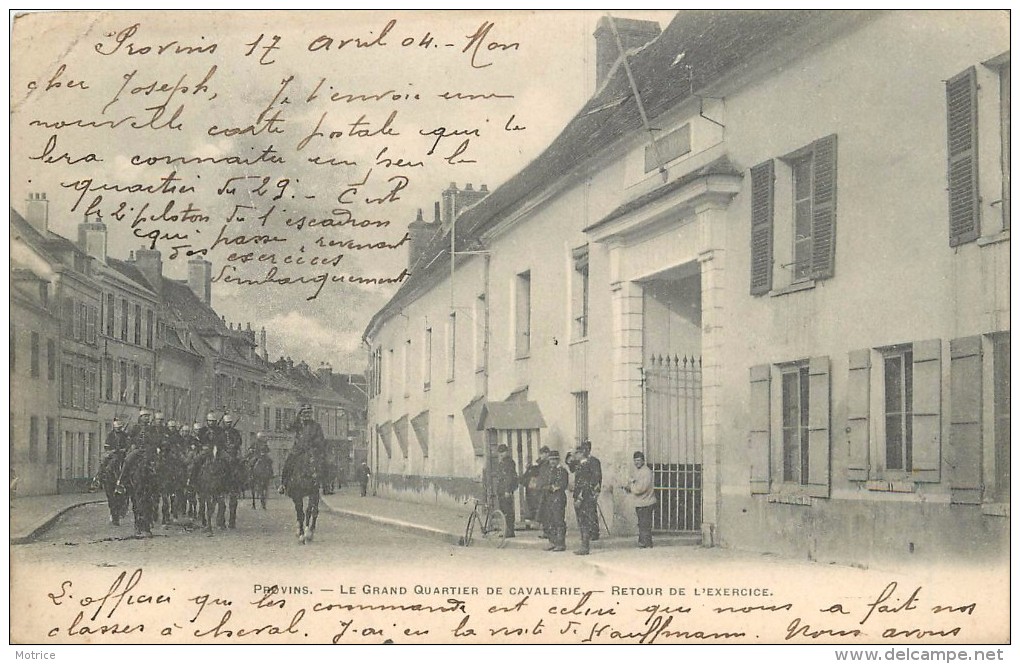 Provins 17 avril 04. - Mon
cher Joseph, Je t'envoie une
nouvelle carte postale qui te
fera connaitre un peu le
quartier du 29e. - C'est
le 2e peloton de l'escadron
qui passe, revenant
des exercices
d'embarquement
PROVINS. — LE GRAND QUARTIER DE CAVALERIE. — RETOUR DE L'EXERCICE.
L'officier qui les commande est celui qui nous a fait nos
classes à cheval. J'ai eu la visite de Kauffmann. Nous avons
Motrice
http://www.delcampe.net